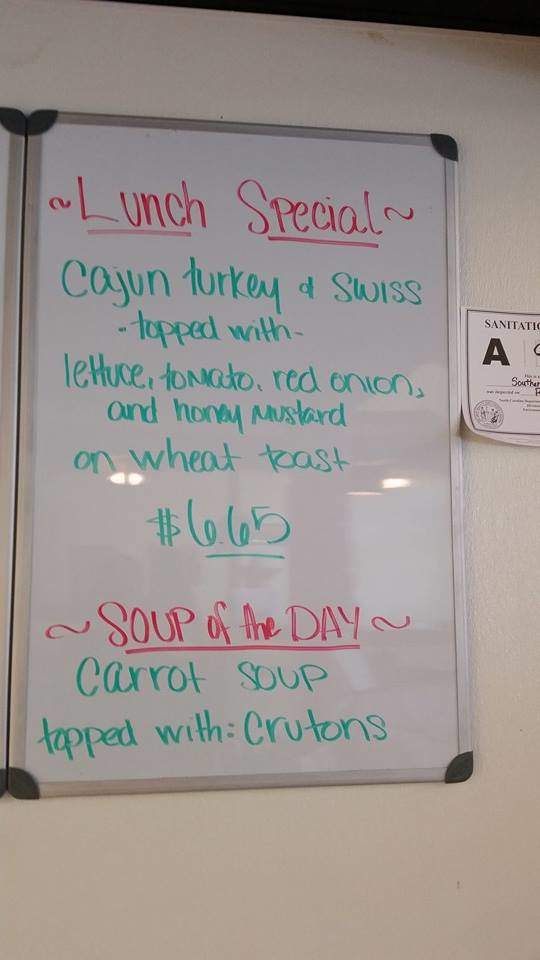 ~Lunch Special~
Cajun turkey & swiss
-topped with-
lettuce, tomato, red onion,
and honey mustard
on wheat toast
$6.65
~Soup of the DAY~
Carrot soup
topped with: Crutons
SANITATIO
A
Souther